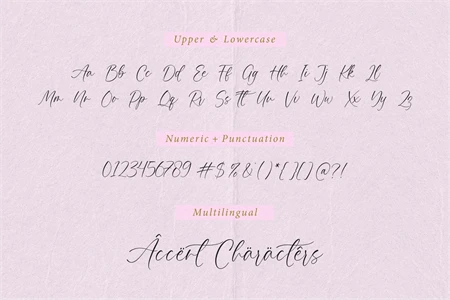 Upper & Lowercase
Aa Bb Cc Dd Ee Ff Gg Hh Ii Jj Kk Ll
Mm Nn Oo Pp Qq Rr Ss Tt Uu Vv Ww Xx Yy Zz
Numeric + Punctuation
0123456789 #$%&()*[]{}@?!
Multilingual
Âccënt Chäräctêrs